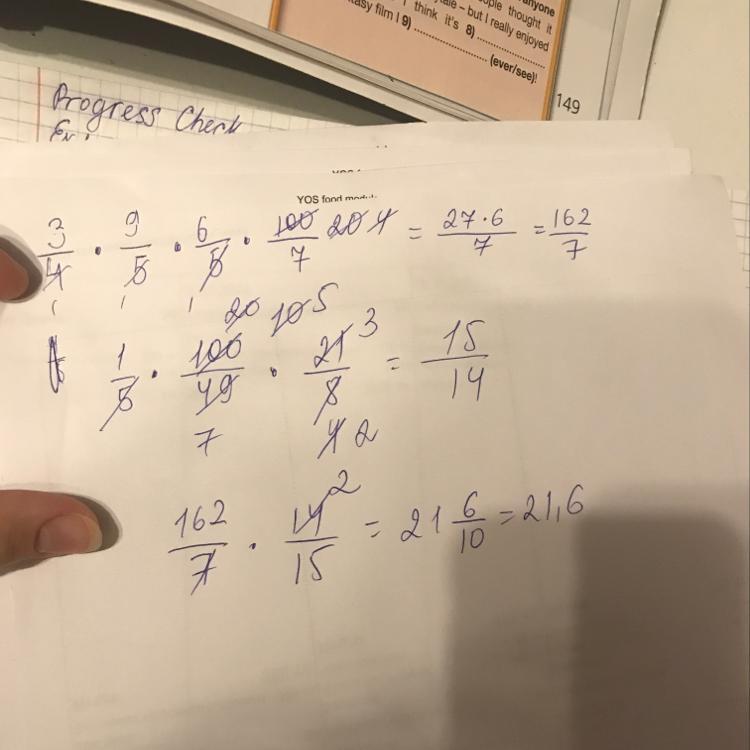 anyone
ople thought it
ale – but I really enjoyed
I think it's 8) ..........
tasy film I 9) .......... (ever/see)!
149
Progress Check
Ex.
YOS fond modul
3/4 · 9/5 · 6/5 · 100/7 20 4 = 27·6/7 = 162/7
1 1 1
20 10 5
1/5 · 100/49 · 21/8 3 = 15/14
7 4 2
162/7 · 14/15 2 = 21 6/10 = 21,6